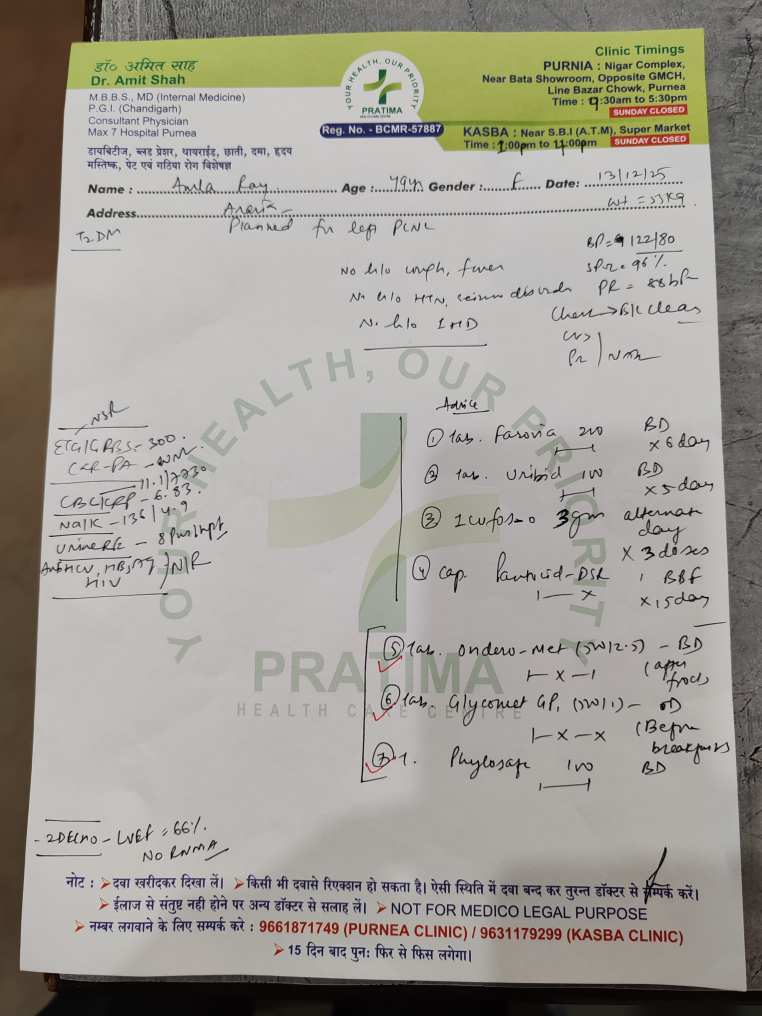 डॉ० अमित साह
Dr. Amit Shah
M.B.B.S., MD (Internal Medicine)
P.G.I. (Chandigarh)
Consultant Physician
Max 7 Hospital Purnea
डायबिटीज, ब्लड प्रेशर, थायराईड, छाती, दमा, हृदय
मस्तिष्क, पेट एवं गठिया रोग विशेषज्ञ
YOUR HEALTH, OUR PRIORITY
PRATIMA
HEALTH CARE CENTRE
Reg. No. - BCMR-57887
Clinic Timings
PURNIA : Nigar Complex,
Near Bata Showroom, Opposite GMCH,
Line Bazar Chowk, Purnea
Time : 9:30am to 5:30pm
SUNDAY CLOSED
KASBA : Near S.B.I (A.T.M), Super Market
Time : :00pm to :00pm SUNDAY CLOSED
Name : Ray Age : 49yr Gender : F Date: 13/12/25
Address
wt = 53kg
T2DM
Planned for left PCNL
BP = 122/80
SPo2 = 96%
PR = 88
No h/o cough, fever
No h/o HTN, seizure disorder
No h/o IHD
Chest → B/L clear
CVS
NSR
ECG/GRBS - 300
CXR-PA - WNL
11.1/7730
CBC/CRP - 6.83
Na/K - 136/4.9
Urine RE - 8 Pus/hpf
Anti HCV, HBsAg / N/R
HIV
Advice
① Tab. Farovia 200 BD
x 6 day
② Tab. Unibid 100 BD
x 5 day
③ 3gm alternate
day
x 3 doses
④ Cap. Pantocid-DSR 1 BBF
1 — x x 15 day
⑤ Tab. Ondero-Met (500/2.5) - BD
1 - x - 1 (after
food)
⑥ Tab. Glycomet GP1 (500/1) - OD
1 - x - x (Before
breakfast)
⑦ T. 100 BD
YOUR HEALTH, OUR PRIORITY
PRATIMA
HEALTH CARE CENTRE
- 2D ECHO - LVEF = 66%
NO RWMA
नोट : ➤ दवा खरीदकर दिखा लें। ➤ किसी भी दवासे रिएक्शन हो सकता है। ऐसी स्थिति में दवा बन्द कर तुरन्त डॉक्टर से सम्पर्क करें।
➤ ईलाज से संतुष्ट नही होने पर अन्य डॉक्टर से सलाह लें। ➤ NOT FOR MEDICO LEGAL PURPOSE
➤ नम्बर लगवाने के लिए सम्पर्क करे : 9661871749 (PURNEA CLINIC) / 9631179299 (KASBA CLINIC)
➤ 15 दिन बाद पुन: फिर से फिस लगेगा।